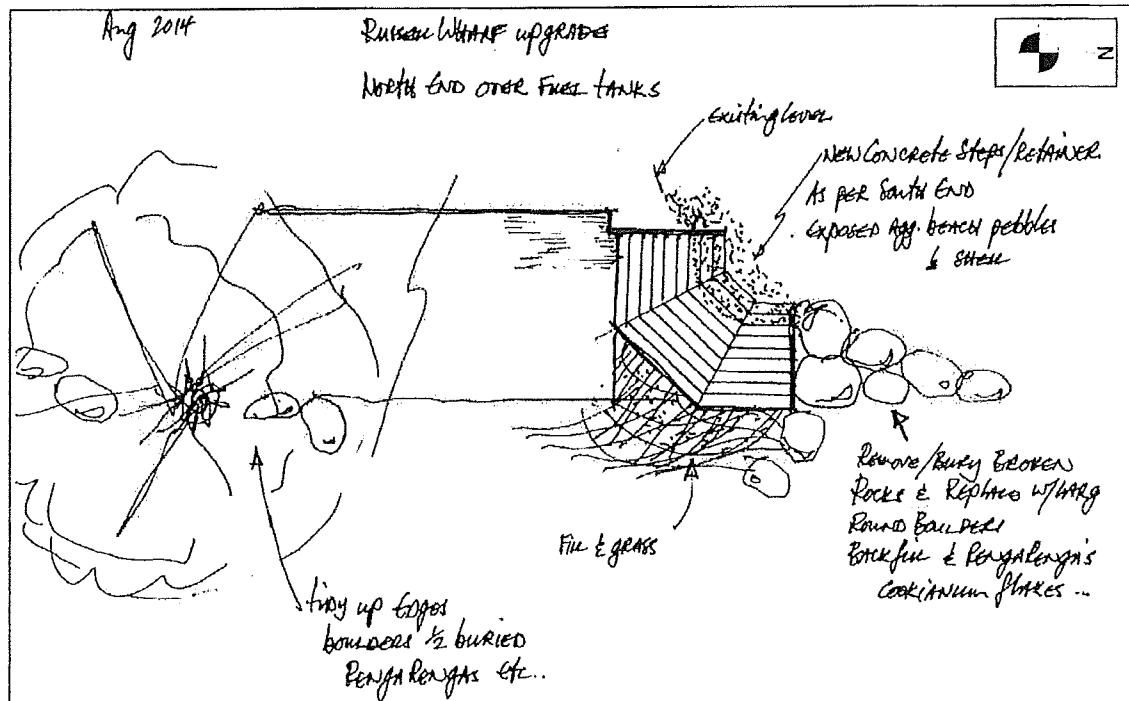 Aug 2014
Russell Wharf upgrade
North End over Fuel tanks
N
Existing Level
New Concrete Steps/Retainer
As per South End
Exposed Agg. beach pebbles
& Shell
Remove/Bury Broken
Rocks & Replace w/Larg
Round Boulders
Backfill & RengaRenga's
Cookianum flaxes ..
Fill & grass
tidy up Edges
boulders ½ buried
RengaRengas Etc..